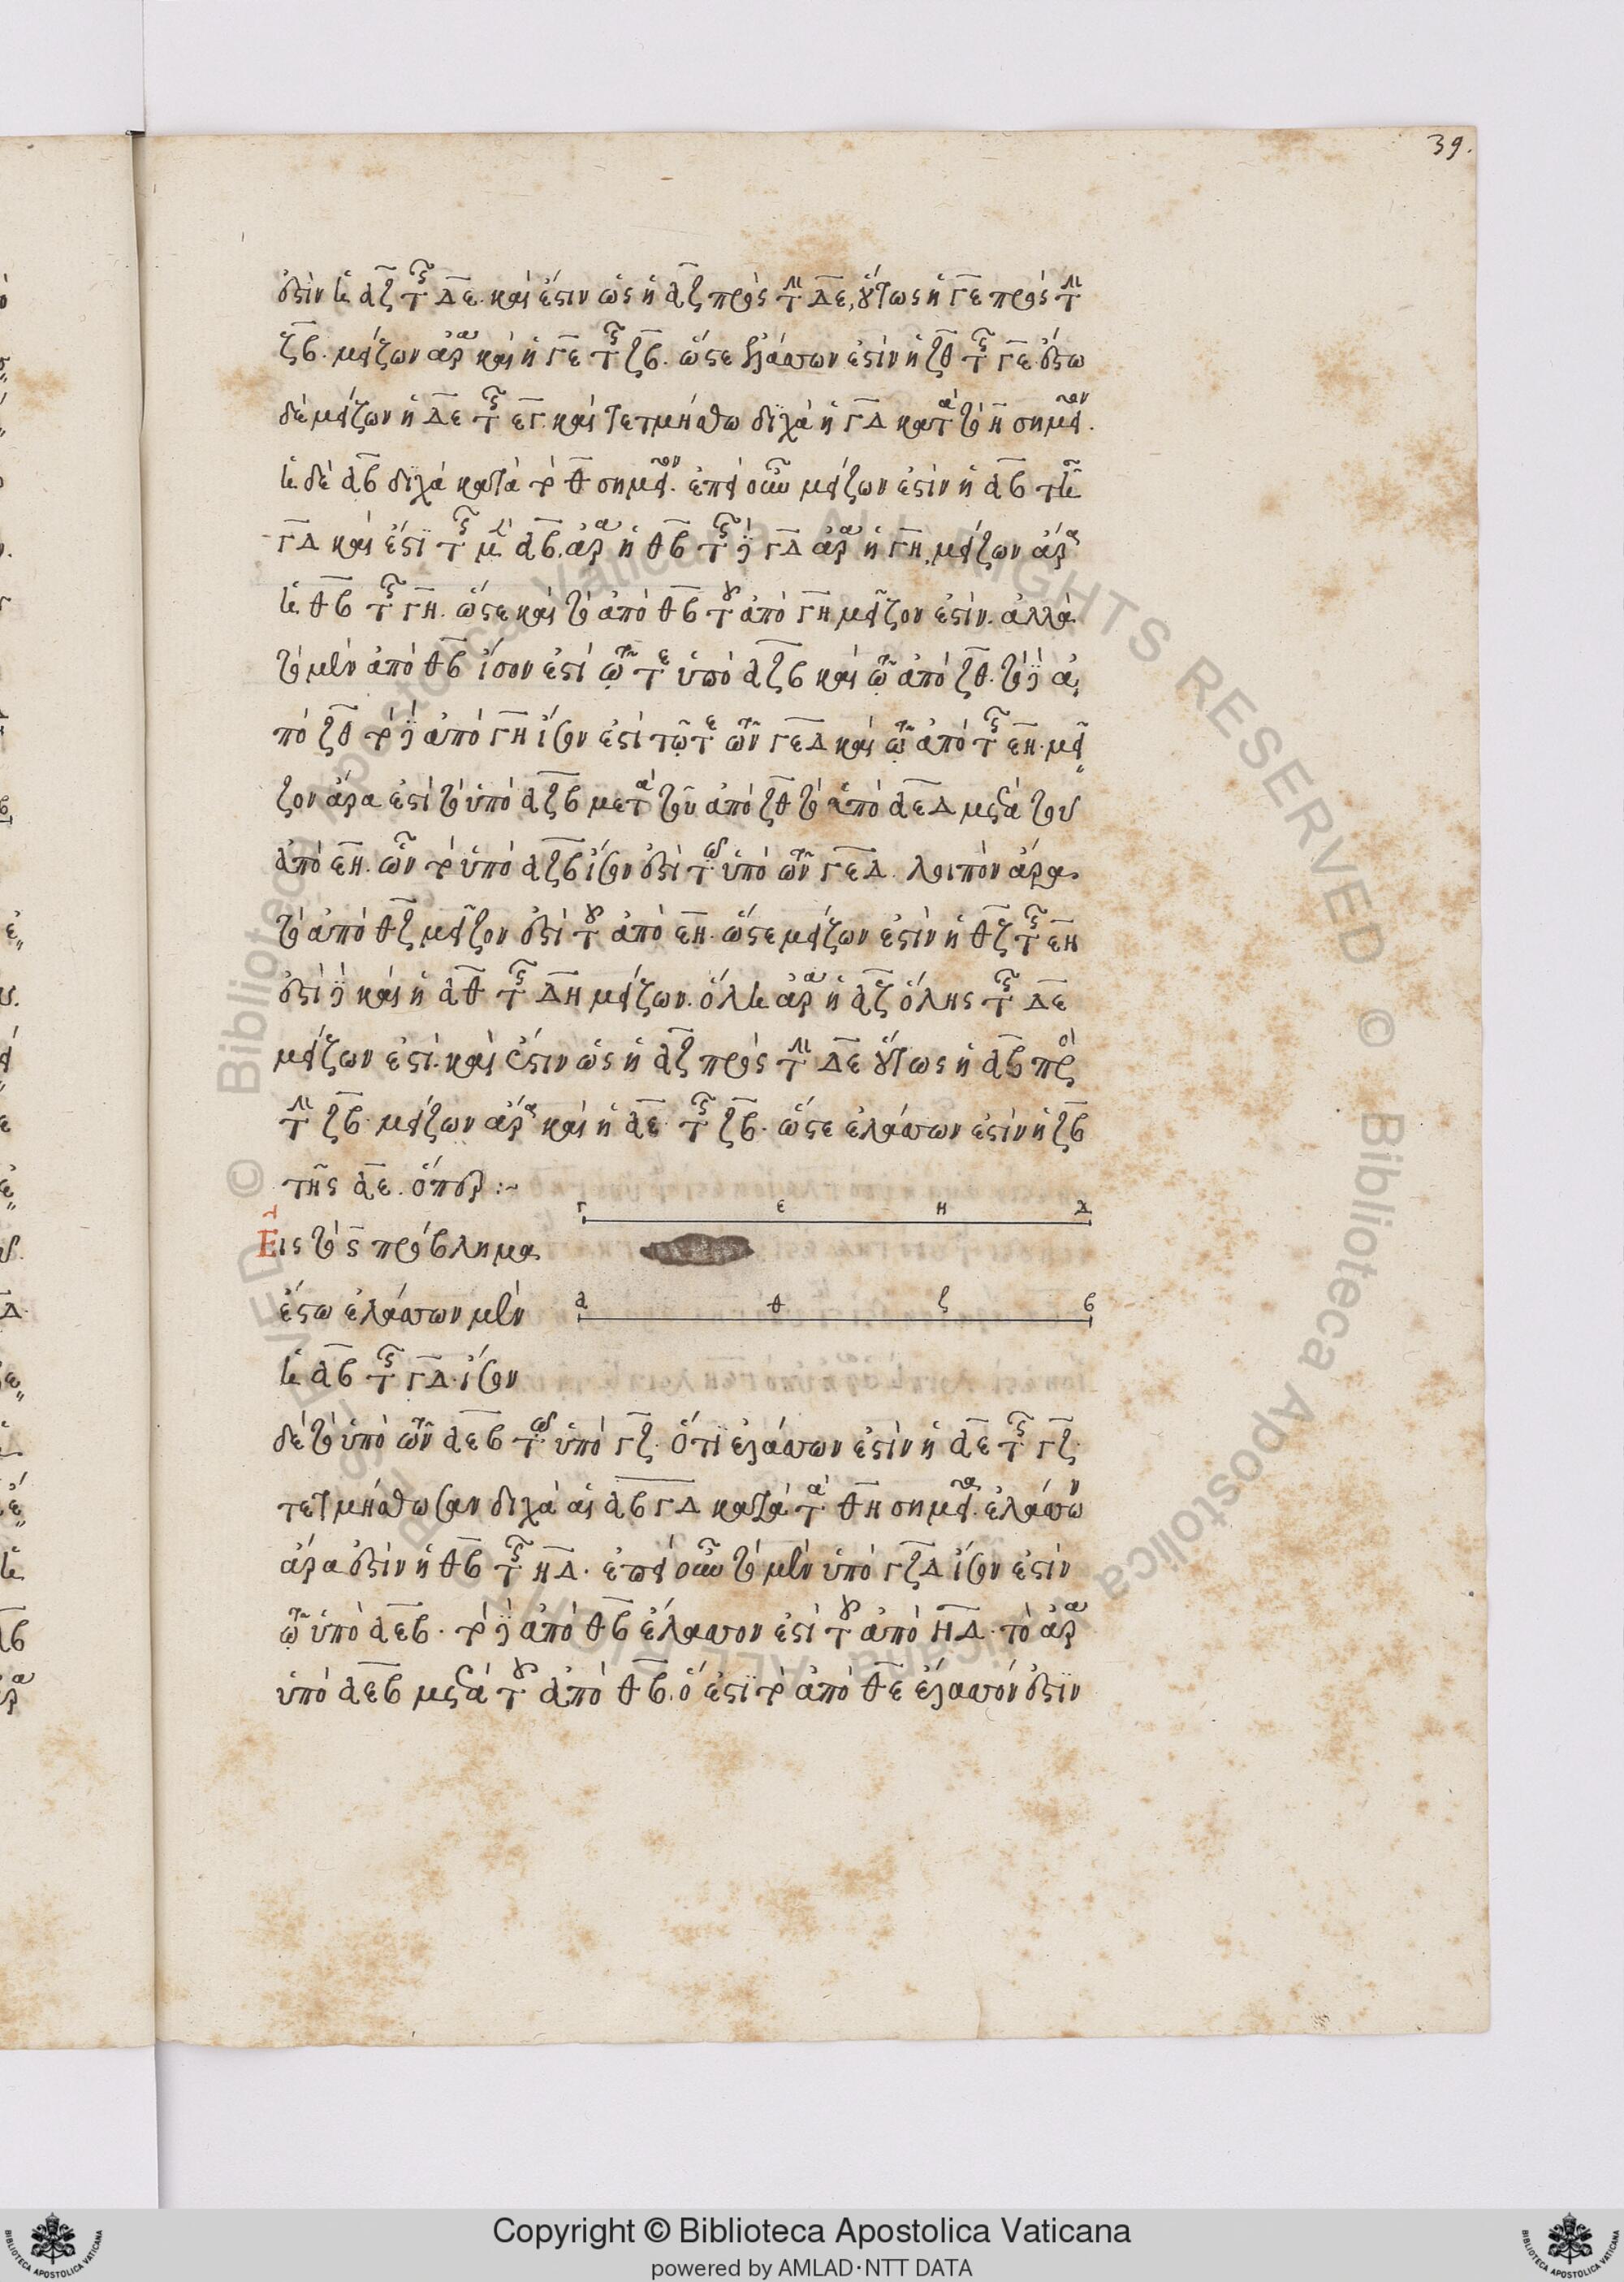 39.
ἐστὶν ἡ αζ τῆς δε. καὶ ἔστιν ὡς ἡ αζ πρὸς τὴν δε, οὕτως ἡ γε πρὸς τὴν
ζβ. μείζων ἄρα καὶ ἡ γε τῆς ζβ. ὥστε ἐλάττων ἐστὶν ἡ ζβ τῆς γε. ἔστω
δὲ μείζων ἡ δε τῆς εγ. καὶ τετμήσθω δίχα ἡ γδ κατὰ τὸ η σημεῖον.
ἡ δὲ αβ δίχα κατὰ τὸ θ σημεῖον. ἐπεὶ οὖν μείζων ἐστὶν ἡ αβ τῆς
γδ καὶ ἔστι τῆς μὲν αβ. ἄρα ἡ θβ τῆς δὲ γδ ἄρα ἡ γη, μείζων ἄρα
ἡ θβ τῆς γη. ὥστε καὶ τὸ ἀπὸ θβ τοῦ ἀπὸ γη μεῖζον ἐστίν. ἀλλὰ
τὸ μὲν ἀπὸ θβ ἴσον ἐστὶ τῷ τε ὑπὸ αζβ καὶ τῷ ἀπὸ ζθ. τὸ δὲ ἀ
πὸ ζθ τὸ δὲ ἀπὸ γη ἴσον ἐστὶ τῷ τε τῶν γεδ καὶ τῷ ἀπὸ τῆς εη. μεῖ
ζον ἄρα ἐστὶ τὸ ὑπὸ αζβ μετὰ τοῦ ἀπὸ ζθ τὸ ὑπὸ αεδ μετὰ τοῦ
ἀπὸ εη. ὧν τὸ ὑπὸ αζβ ἴσον ἐστὶ τῷ ὑπὸ τῶν γεδ. λοιπὸν ἄρα
τὸ ἀπὸ θζ μεῖζον ἐστὶ τοῦ ἀπὸ εη. ὥστε μείζων ἐστὶν ἡ θζ τῆς εη
ἐστὶ δὲ καὶ ἡ αθ τῆς δη μείζων. ὅλη ἄρα ἡ αζ ὅλης τῆς δε
μείζων ἐστί. καὶ ἔστιν ὡς ἡ αζ πρὸς τὴν δε οὕτως ἡ αβ πρὸς
τὴν ζβ. μείζων ἄρα καὶ ἡ αε τῆς ζβ. ὥστε ἐλάττων ἐστὶν ἡ ζβ
τῆς αε. ὅπερ :~
γ ε η δ
Εἰς τὸ ς πρόβλημα
ἔστω ἐλάττων μὲν
α θ ζ β
ἡ αβ τῆς γδ. ἴσον
δὲ τὸ ὑπὸ τῶν αεβ τῷ ὑπὸ γζ. ὅτι ἐλάττων ἐστὶν ἡ αε τῆς γζ.
τετμήσθωσαν δίχα αἱ αβ γδ κατὰ τὰ θη σημεῖα. ἐλάττων
ἄρα ἐστὶν ἡ θβ τῆς ηδ. ἐπεὶ οὖν τὸ μὲν ὑπὸ γζδ ἴσον ἐστὶν
τῷ ὑπὸ αεβ. τὸ δὲ ἀπὸ θβ ἔλαττον ἐστὶ τοῦ ἀπὸ ηδ. τὸ ἄρα
ὑπὸ αεβ μετὰ τοῦ ἀπὸ θβ. ὅ ἐστι τὸ ἀπὸ θε ἔλαττόν ἐστιν
Copyright © Biblioteca Apostolica Vaticana
powered by AMLAD·NTT DATA